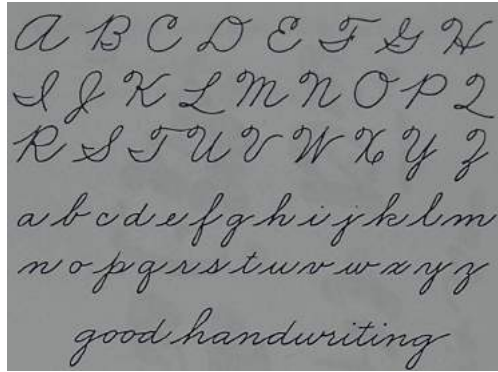 A B C D E F G H
I J K L M N O P Q
R S T U V W X Y Z
a b c d e f g h i j k l m
n o p q r s t u v w x y z
good handwriting